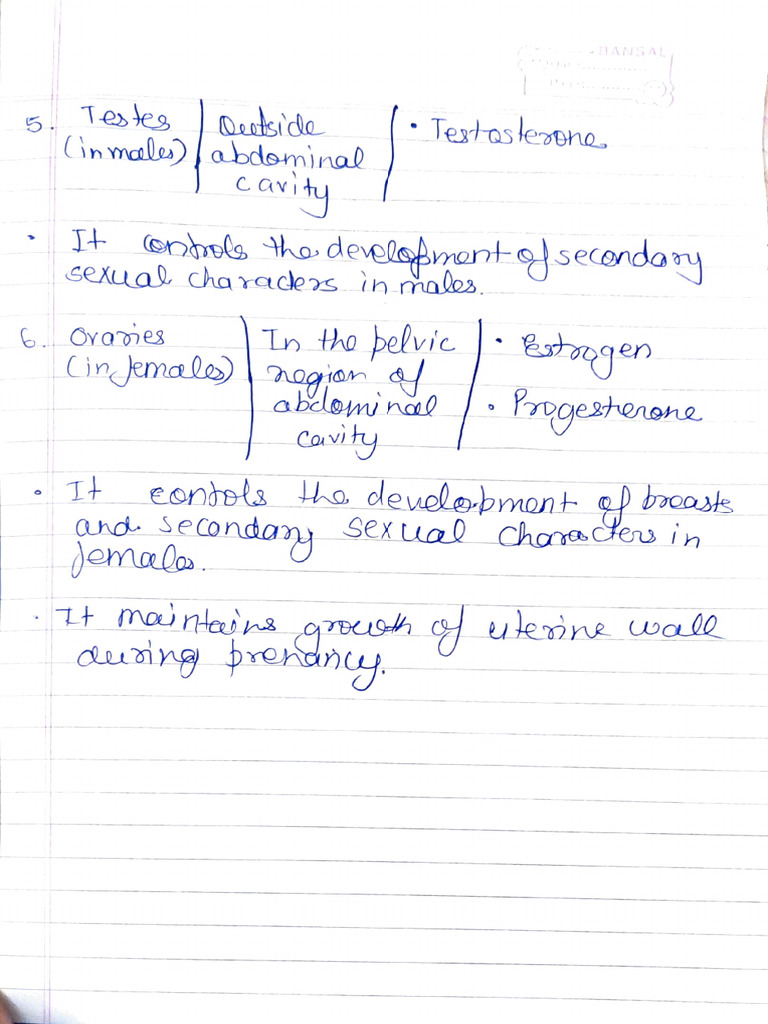 BANSAL
5. Testes | Outside | • Testosterone
(in males) | abdominal
cavity
• It controls the development of secondary
sexual characters in males.
6. Ovaries | In the pelvic | • Estrogen
(in females) | region of
abdominal | • Progesterone
cavity
• It contols the development of breasts
and secondary sexual characters in
females.
• It maintains growth of uterine wall
during prenancy.